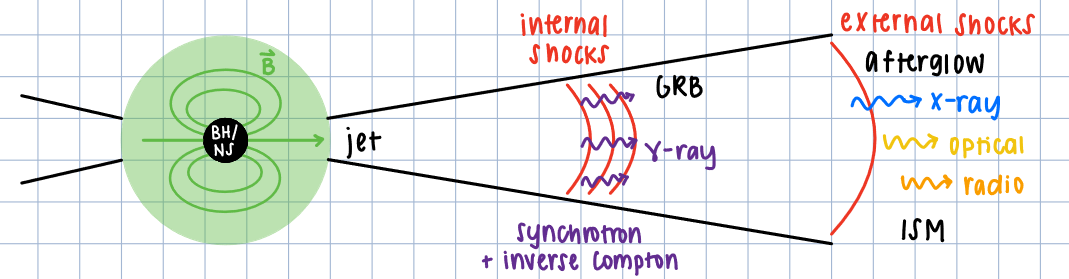 B
BH/
NS
jet
internal
shocks
GRB
γ-ray
synchrotron
+ inverse Compton
external shocks
afterglow
x-ray
optical
radio
ISM